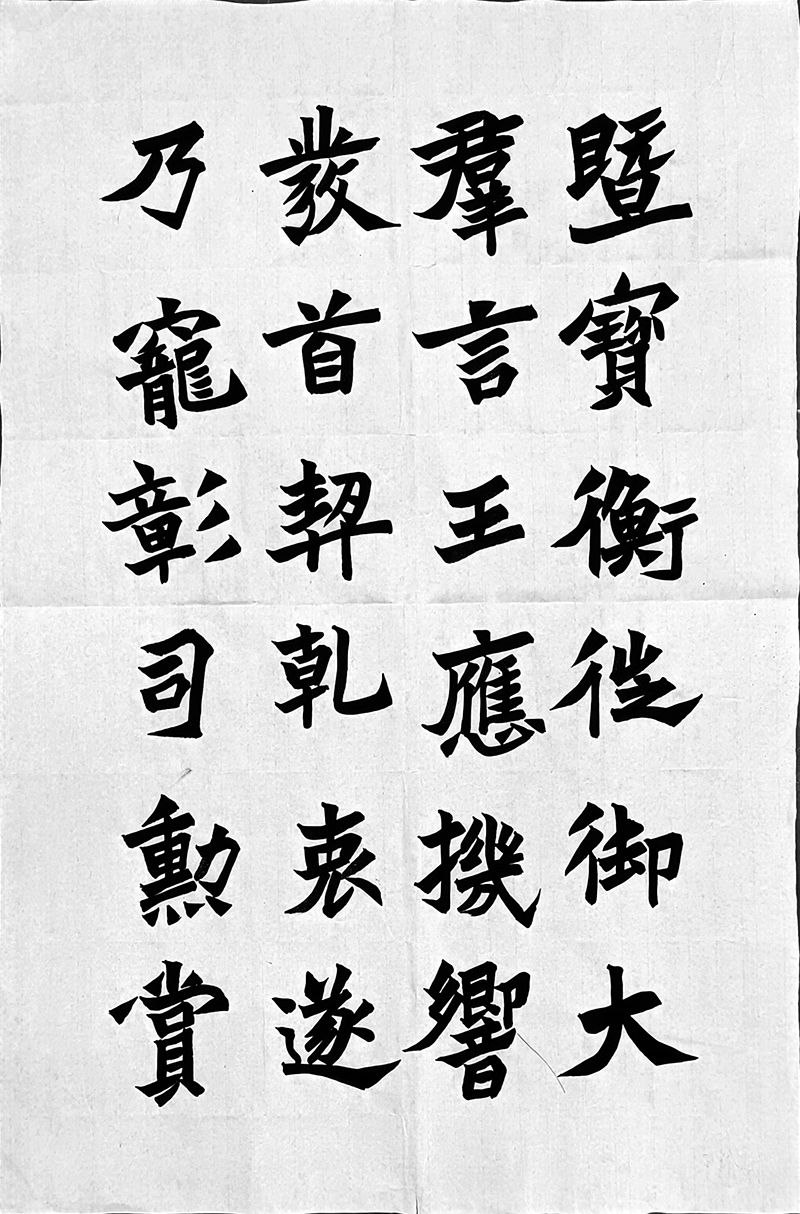 暨寶衡徙御大
羣言王應機響
發首契乾衷遂
乃寵彰司勳賞